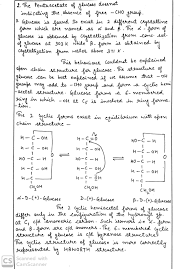 2. The pentaacetate of glucose doesnot
indicating the absence of free -CHO group.
3. Glucose is found to exist in 2 different crystalline
form which are named as α and β. The α-form of
glucose is obtained by crystallisation from conc. soln
of glucose at 303 K while β-form is obtained by
crystallisation from
This behaviour couldnot be explained
open chain structure for glucose. The structure of
glucose can be best explained if we assume that -OH
group may add to -CHO group and form a cyclic hemi
-acetal structure. Glucose forms a 6-membered
ring in which -OH at C5 is involved in ring forma
-tion.
The 2 cyclic forms exist in equilibrium with open
chain structure
α-D-(+)-Glucose
D-(+)-Glucose
β-D-(+)-Glucose
The 2 cyclic hemiacetal forms of glucose
differ only in the configuration of the hydroxyl gp.
at C1 c/a anomeric carbon. Such isomers i.e. α-form
and β-form are c/a anomers. The 6 membered cyclic
structure of glucose is c/a pyranose structure.
The cyclic structure of glucose is more correctly
represented by HAWORTH structure.
CS